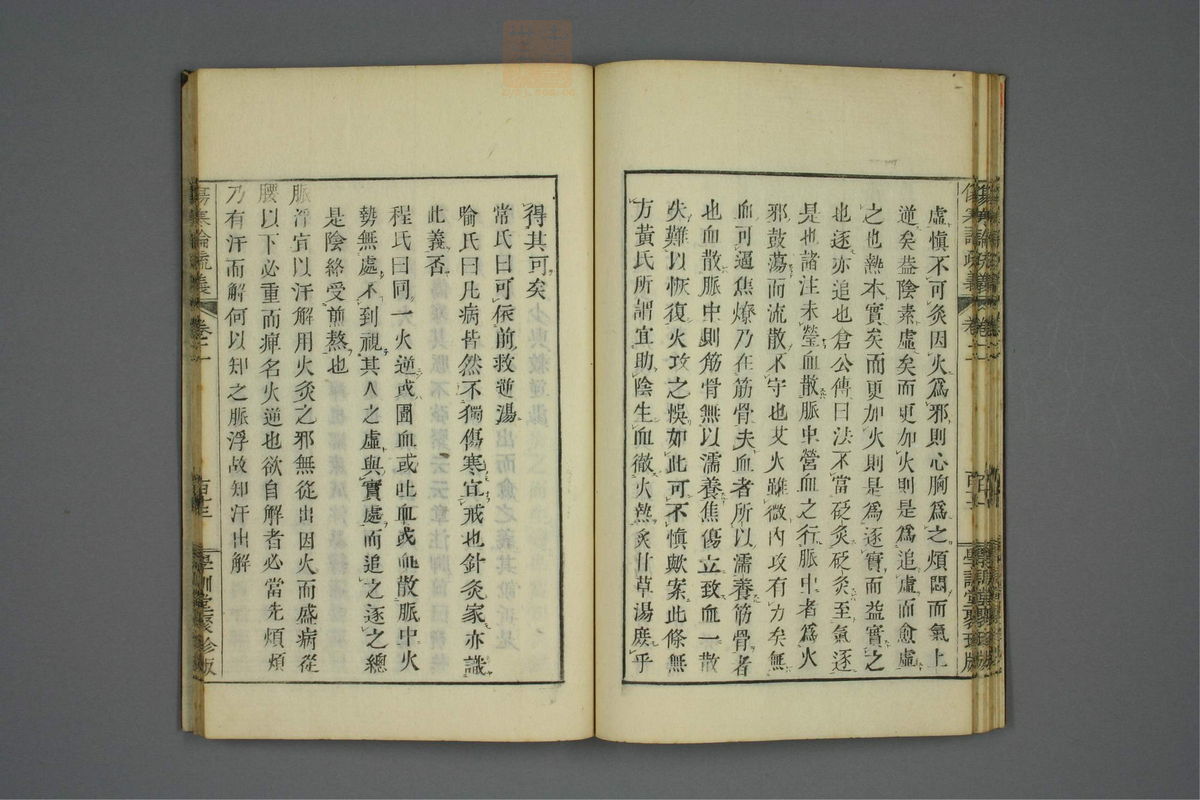 虛愼不可灸因火爲邪則心胸爲之煩悶而氣上
逆矣葢陰素虛矣而更加火則是爲追虛而愈虛
之也熱本實矣而更加火則是爲逐實而益實之
也逐亦追也倉公傳曰法不當砭灸砭灸至氣逐
是也諸注未瑩血散脈中營血之行脈中者爲火
邪鼓蕩而流散不守也艾火雖微內攻有力矣無
血可逼焦燎乃在筋骨夫血者所以濡養筋骨者
也血散脈中則筋骨無以濡養焦傷立致血一散
失難以恢復火攻之悞如此可不愼歟案此條無
方黃氏所謂宜助陰生血徹火熱炙甘草湯庶乎
得其可矣
常氏曰可依前救逆湯
喻氏曰凡病皆然不獨傷寒宜戒也針灸家亦識
此義否
程氏曰同一火逆或圊血或吐血或血散脈中火
勢無處不到視其人之虛與實處而追之逐之總
是陰絡受煎熬也
脈浮宜以汗解用火灸之邪無從出因火而盛病從
腰以下必重而痺名火逆也欲自解者必當先煩煩
乃有汗而解何以知之脈浮故知汗出解
傷寒論疏義
卷二
學訓堂聚珍版